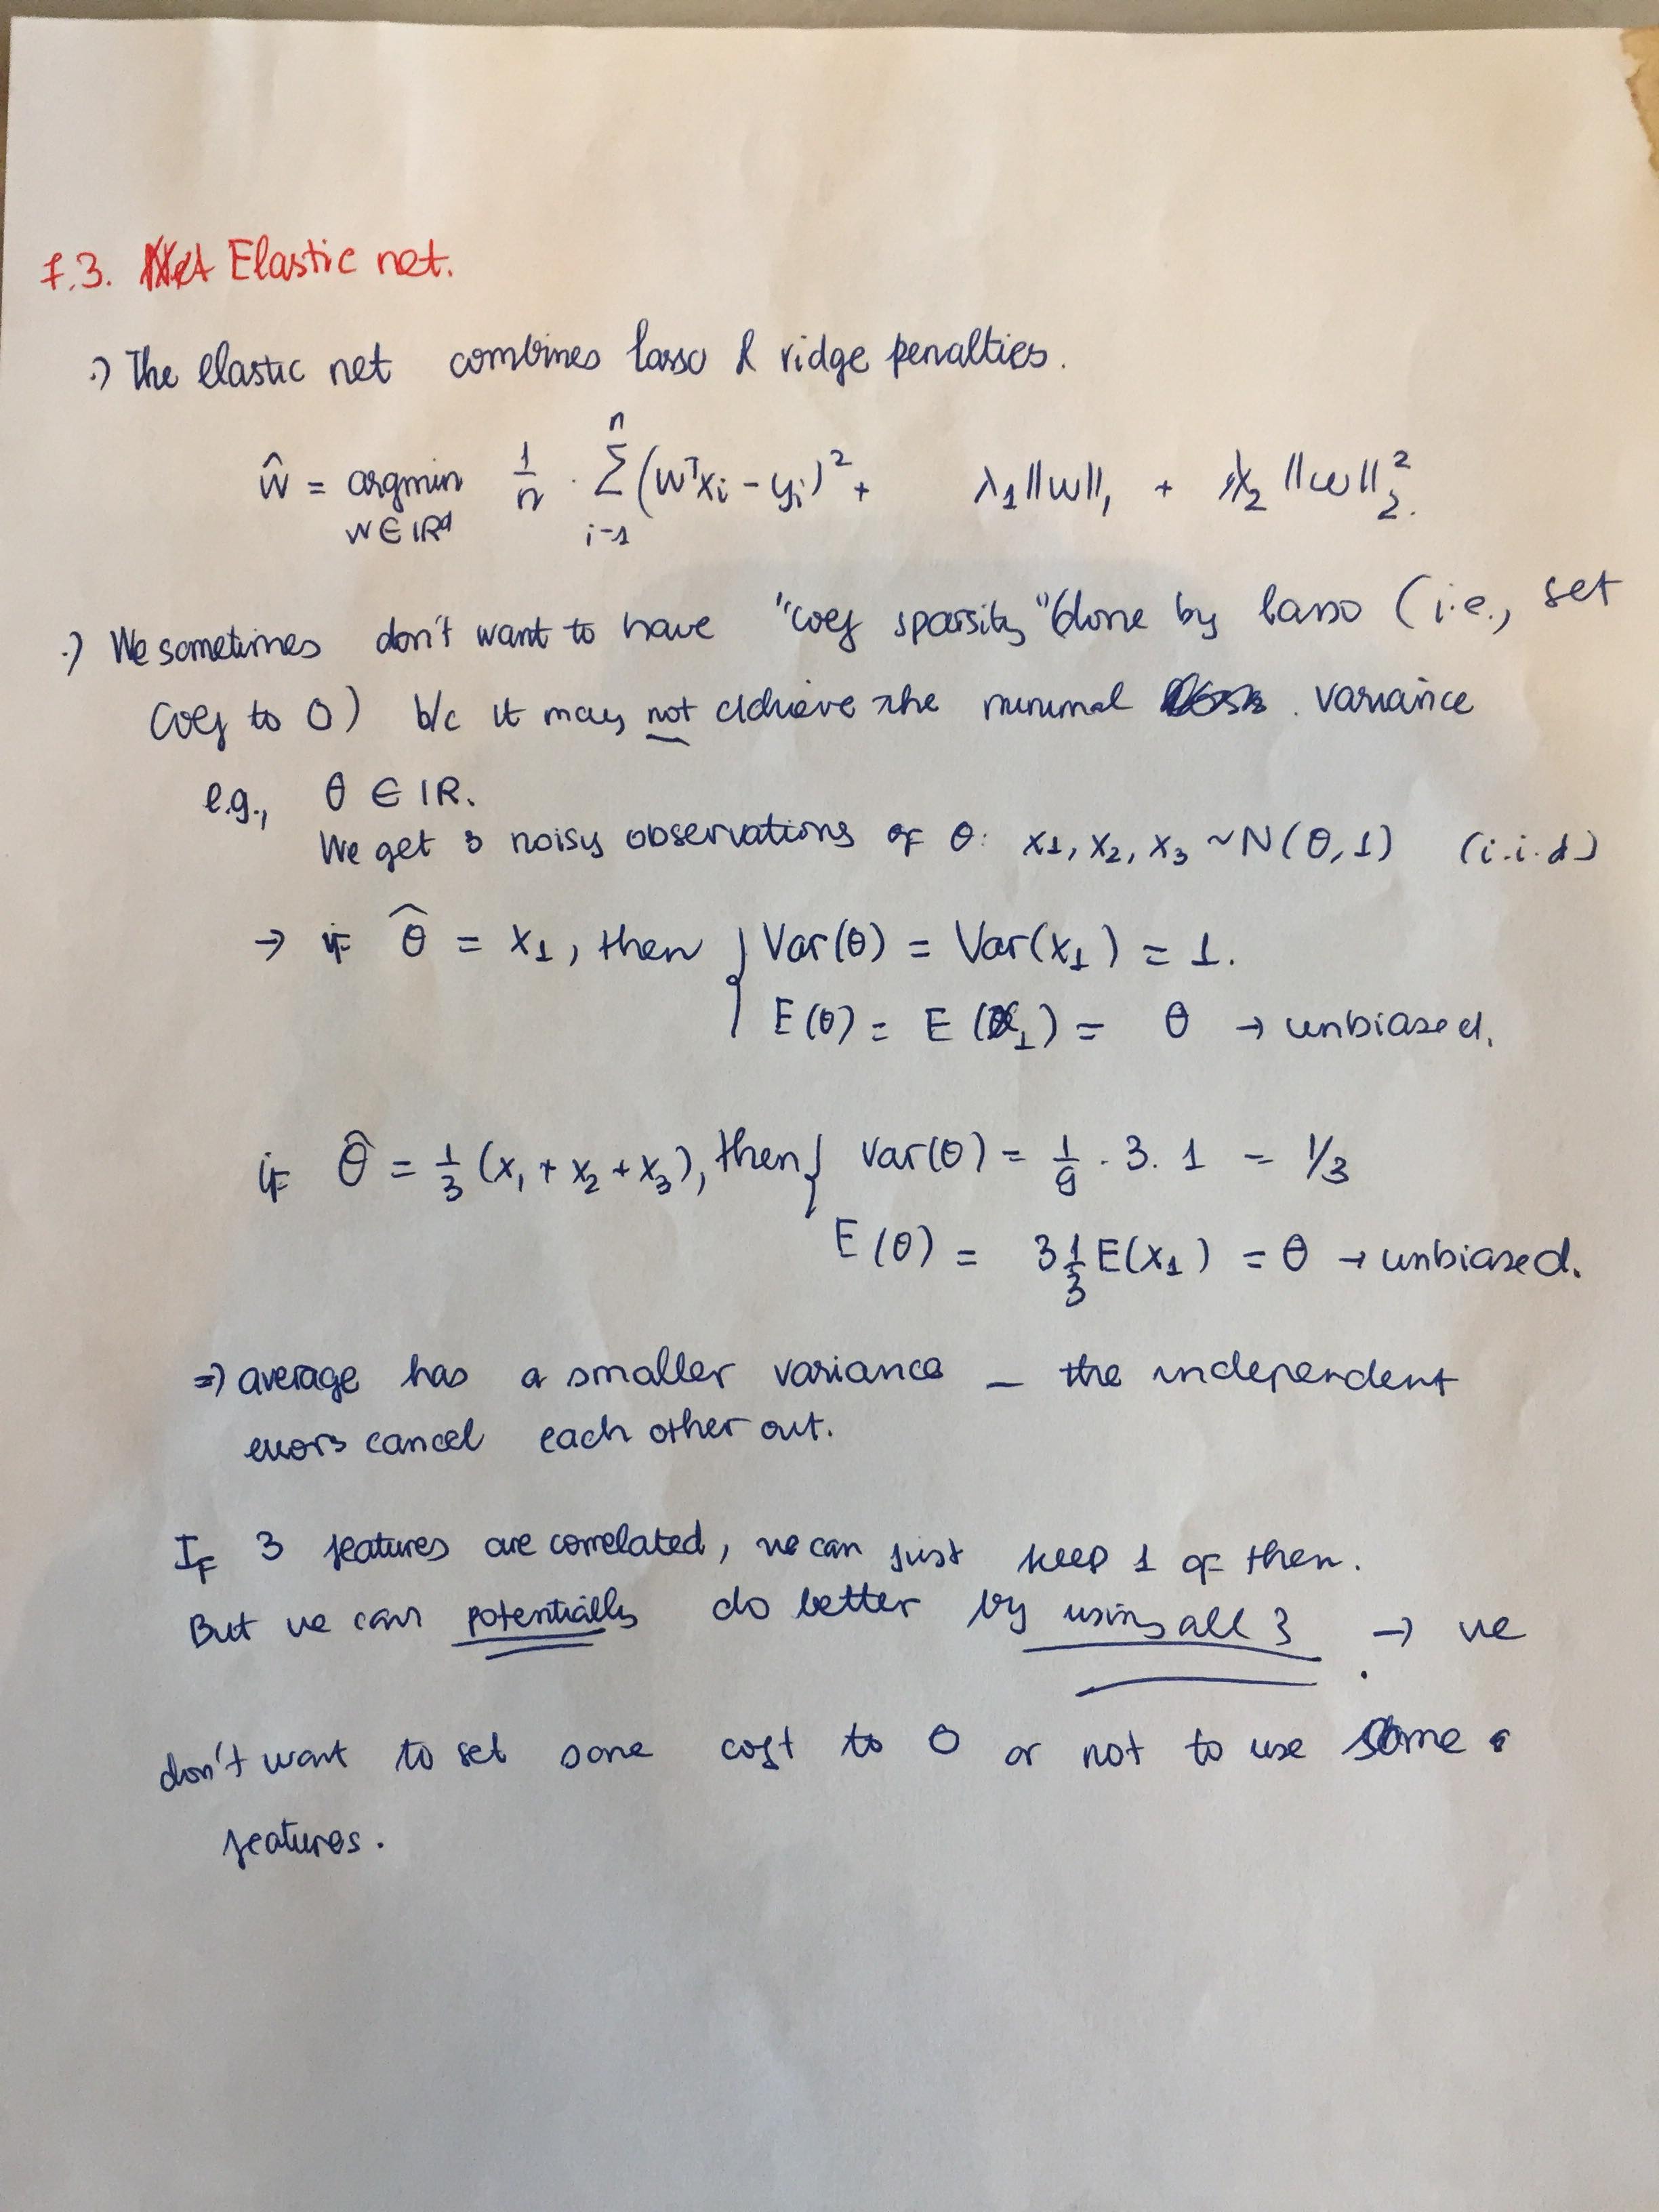 7.3. Elastic net.
.) The elastic net combines lasso & ridge penalties.
ŵ = argmin 1/n · Σ (wᵀxᵢ - yᵢ)² + λ₁||w||₁ + λ₂||w||₂².
w ∈ IRᵈ i=1 n
.) We sometimes don't want to have "coef sparsity" done by lasso (i.e., set
coef to 0) b/c it may not achieve the minimal variance
e.g., θ ∈ IR.
We get 3 noisy observations of θ: x₁, x₂, x₃ ~ N(θ, 1) (i.i.d)
→ if θ̂ = x₁, then { Var(θ) = Var(x₁) = 1.
E(θ) = E(x₁) = θ → unbiased.
if θ̂ = 1/3 (x₁ + x₂ + x₃), then { Var(θ) = 1/9 · 3. 1 = 1/3
E(θ) = 3 1/3 E(x₁) = θ → unbiased.
=> average has a smaller variance – the independent
errors cancel each other out.
If 3 features are correlated, we can just keep 1 of them.
But we can potentially do better by using all 3 → we
don't want to set some coef to 0 or not to use some
features.